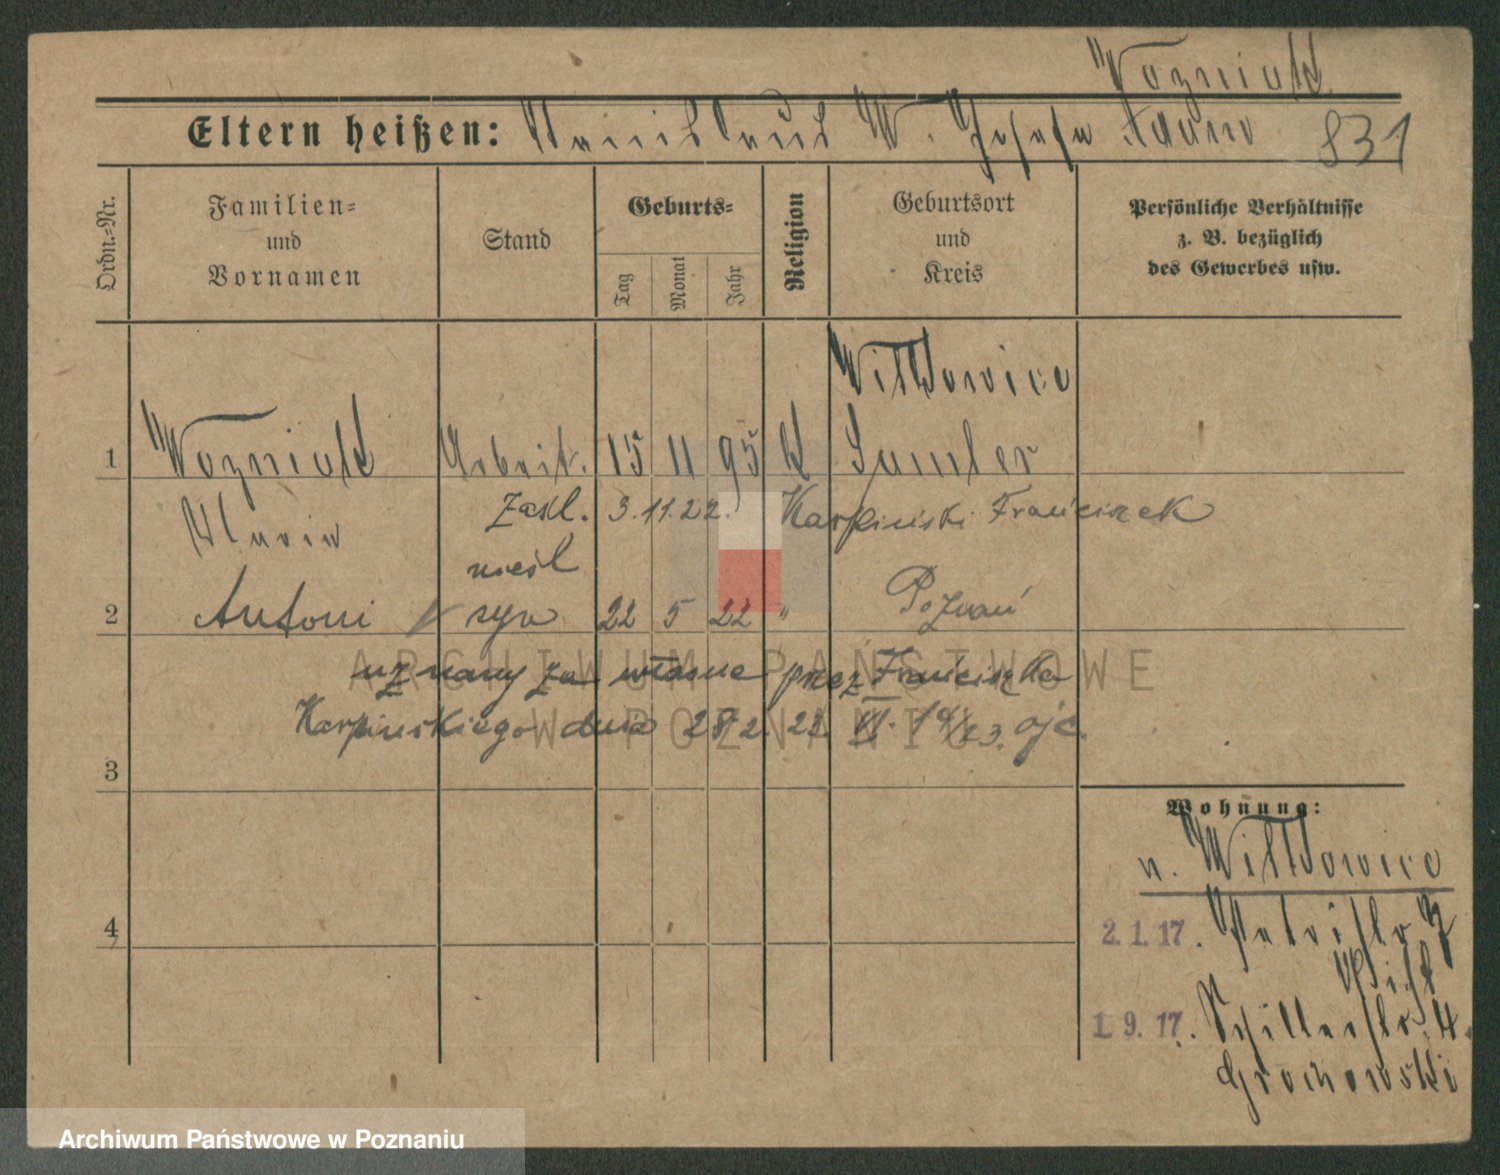 Wozniak
Eltern heißen: Stanislaus W. Josefa Adam 831
Ordn.-Nr.
Familien=
und
Vornamen
Stand
Geburts=
Tag
Monat
Jahr
Religion
Geburtsort
und
Kreis
Persönliche Verhältnisse
z. B. bezüglich
des Gewerbes usw.
Wilkowice
1 Wozniak Arbeit. 15 11 95 k Samter
Maria zasl. 3.11.22. Karpiński Franciszek
nieśl
2 Antoni syn 22 5 22 " Poznań
uznany za własne przez Franciszka
Karpińskiego dnia 28.2.23. VI. 14/23. ojc.
3
Wohnung:
n. Wilkowice
4
2. 1. 17.
1. 9. 17. Schillerstr. 4.
Grochowski
ARCHIWUM PAŃSTWOWE
W POZNANIU
Archiwum Państwowe w Poznaniu